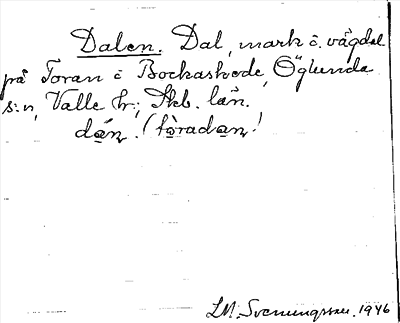 Dalen. Dal, mark o. vägdel
på Toran i Bockaskede, Öglunda
s:n, Valle hr; Skb. län.
dán. (tòradan)
LM. Svenungsson. 1946